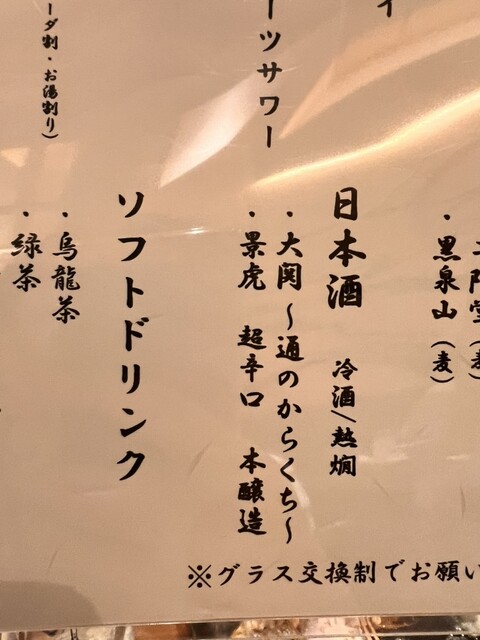 ・黒泉山（麦）
日本酒 冷酒/熱燗
・大関～通のからくち～
・景虎 超辛口 本醸造
ーツサワー
ソフトドリンク
ーダ割・お湯割り）
・烏龍茶
・緑茶
※グラス交換制でお願い